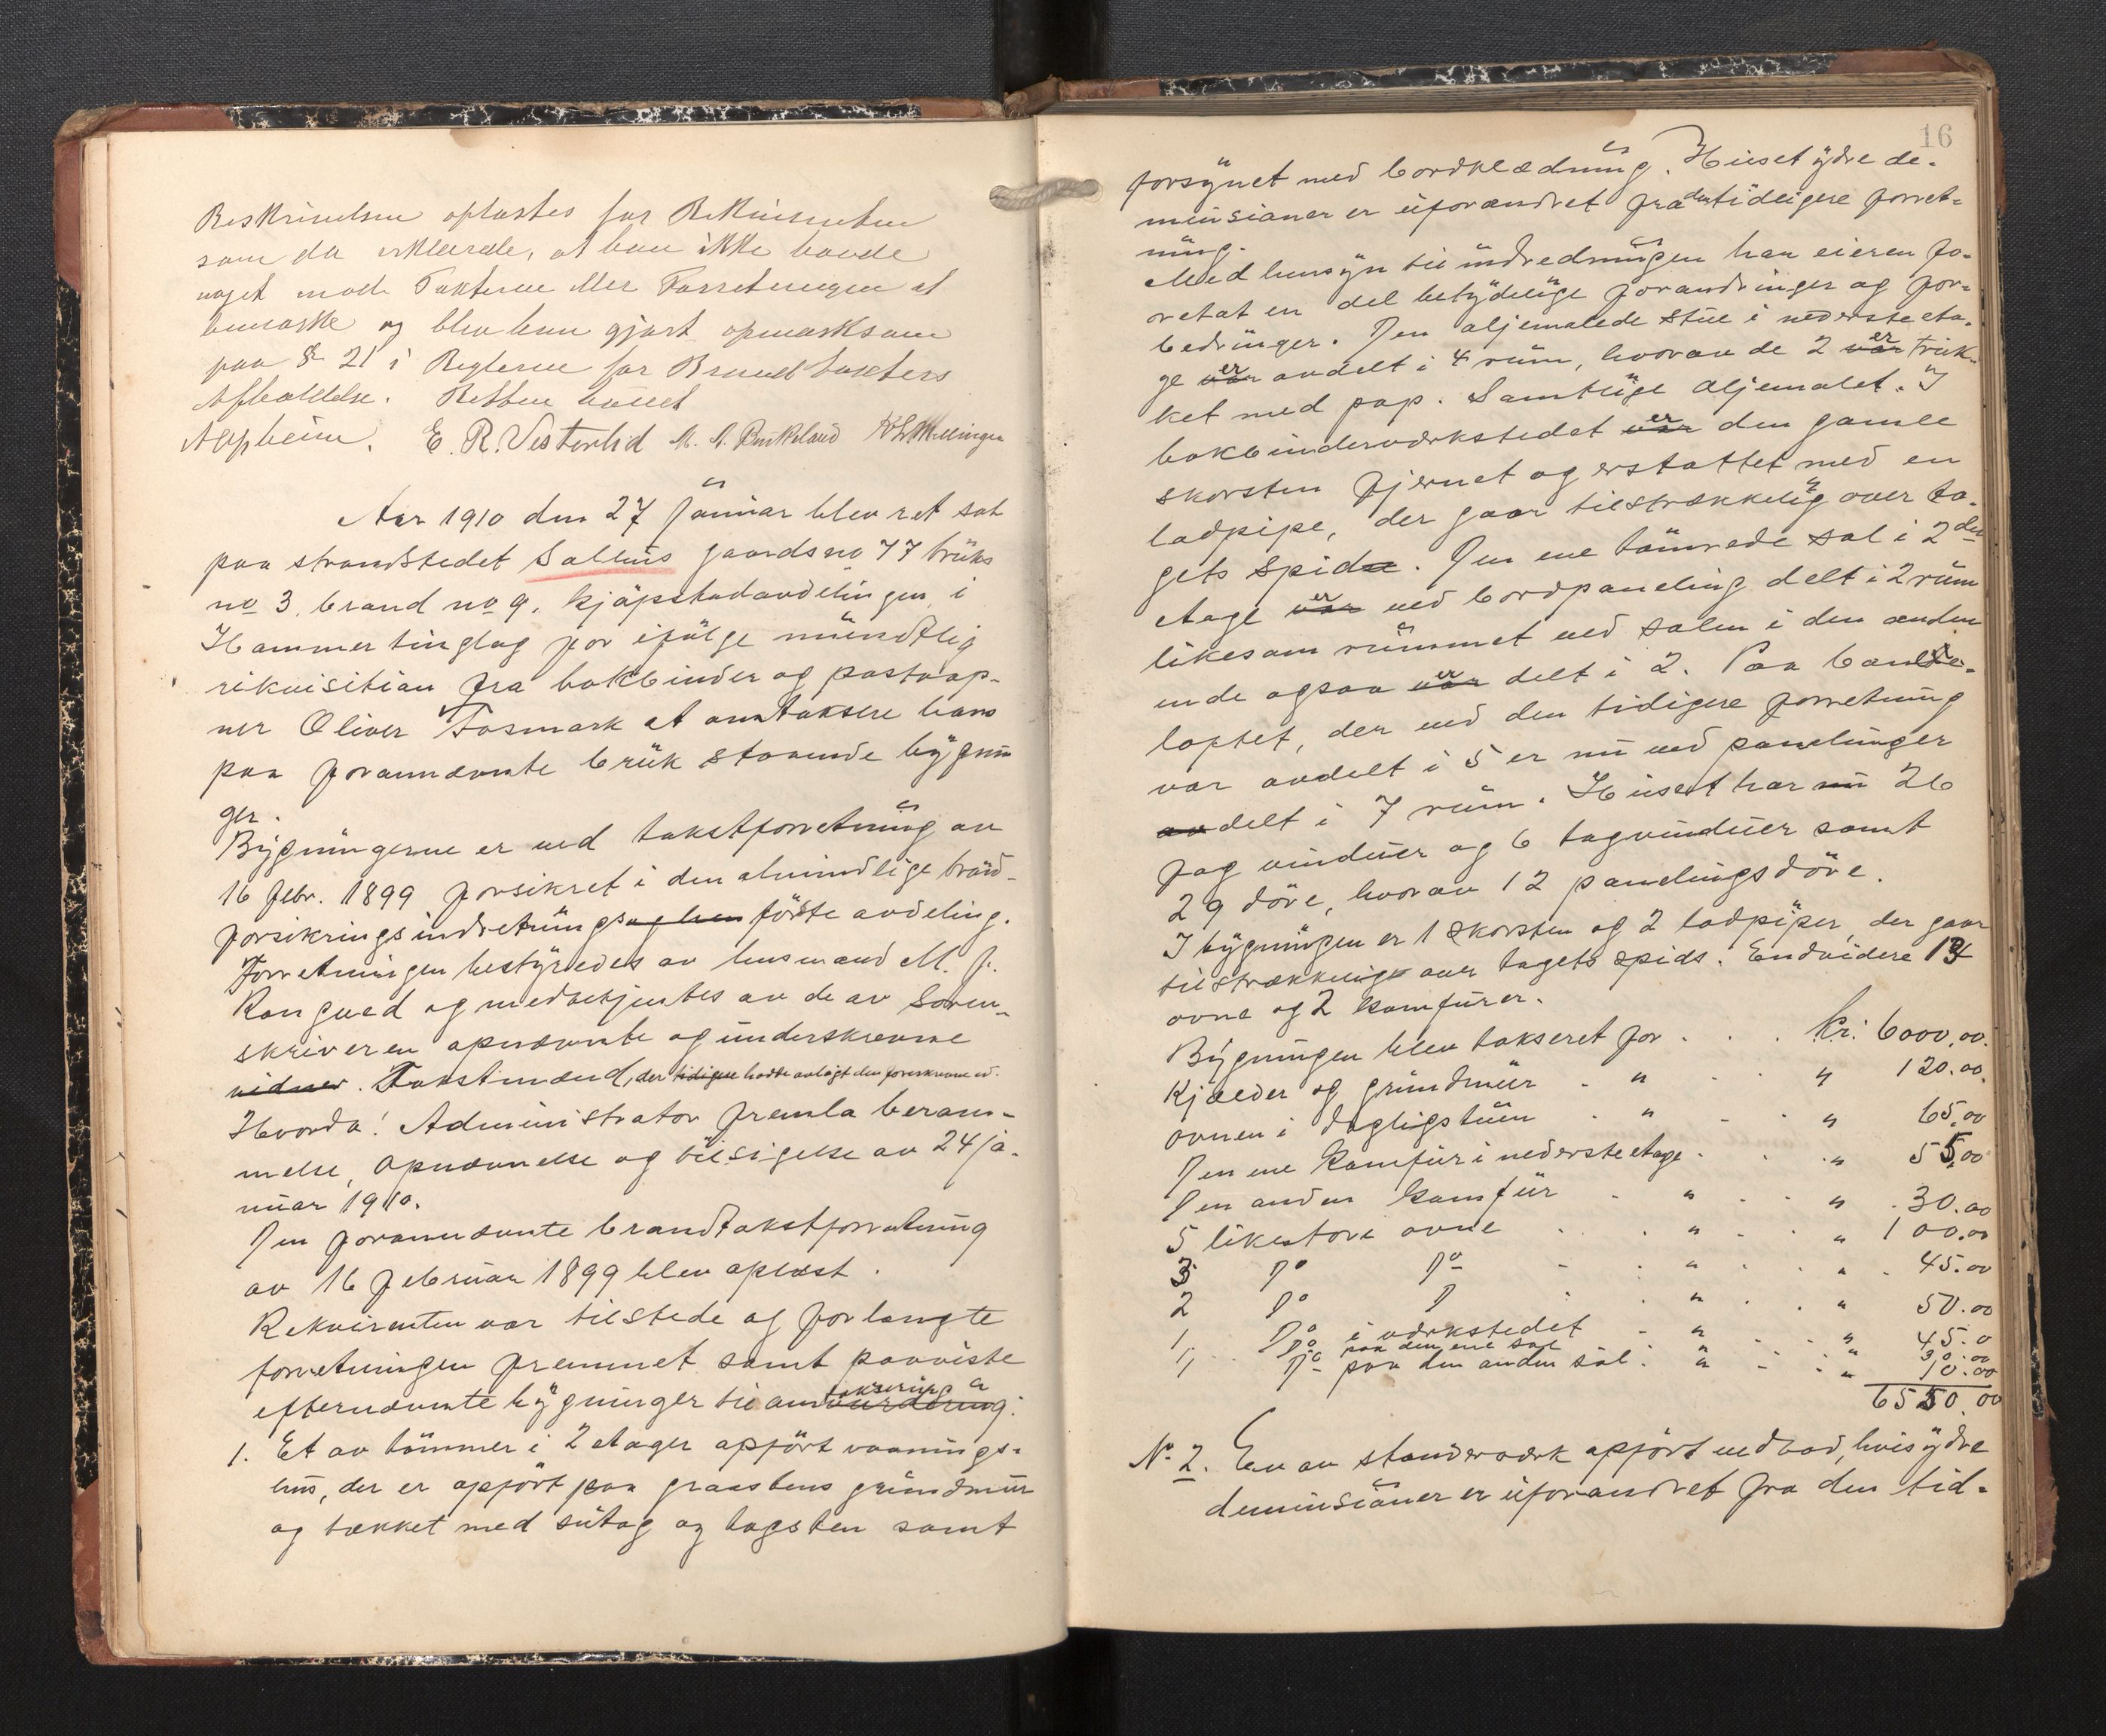 Beskrivelsen oplæstes for Rekvirenten
som da erklærede, at han ikke havde
noget mod Taksterne eller Forretningen at
bemærke og blev han gjort opmærksom
paa § 21 i Reglerne for Brandtaksters
Afholdelse. Retten hævet
E. R. Vesterlid M. A. Birkeland
Aar 1910 den 27 januar blev ret sat
paa strandstedet Salhus gaardsno 77 bruks
no 3, brand no 9, kjøpstadavdelingen, i
Hammer tinglag for ifølge mundtlig
rikvisition fra bokbinder og postaap-
ner Oliver Fosmark at omtaksere hans
paa forannævnte bruk staaende bygnin
ger.
Bygningerne er ved takstforretning av
16 febr. 1899 forsikret i den almindlige brand-
forsikringsindretnings første avdeling.
Forretningen bestyredes av lensmand M. J.
Kongsed og medbetjentes av de av Soren-
skriveren opnævnte og underskrevne
vidner. Takstmænd, der tidligere hadde avlagt den foreskrevne ed.
Hvorda! Administrator fremla beram-
melse, opnævnelse og tilsigelse av 24 ja-
nuar 1910.
Den forannævnte brandtakstforretning
av 16 februar 1899 blev oplæst.
Rekvirenten var tilstede og forlangte
forretningen fremmet samt paaviste
efternævnte bygninger til omtaksering vurdering:
1. Et av tømmer i 2 etager opført vaanings-
hus, der er opført paa graastens grundmur
og tækket med sutag og tagsten samt
16
forsynet med bordklædning. Huset ydre de-
minsioner er uforandret fra den tidligere forret-
ning.
Med hensyn til indredningen har eieren fo-
retat en del betydelige forandringer og for-
bedringer. Den oljemalede stue i nederste eta-
ge var er avdelt i 4 rum, hvorav de 2 var er truk-
ket med pap. Samtlige oljemalet. I
bokbinderværkstedet var er den gamle
skorsten fjernet og erstattet med en
ladpipe, der gaar tilstrækkelig over ta-
gets spids. Den ene tømrede sal i 2den
etage var er ved bordpaneling delt i 2 rum
likesom rummet ved salen i den anden
ende ogsaa var er delt i 2. Paa
loftet, der ved den tidligere forretning
var avdelt i 5 er nu ved panelinger
avdelt i 7 rum. Huset har nu 26
fag vinduer og 6 tagvinduer samt
29 døre, hvorav 12 panelingsdøre.
I bygningen er 1 skorsten og 2 ladpiper, der gaar
tilstrækkelig over tagets spids. Endvidere 14
ovne og 2 komfurer.
Bygningen blev takseret for . . . kr. 6000,00.
Kjælder og grundmur . " . . " 120.00.
Ovnen i dagligstuen . " . . " 65,00
Den ene komfur i nederste etage . . " 55,00
Den anden komfur . " . . " 30.00
5 likestore ovne . . " . " 100.00
3 Do Do . . " . . " 45.00
2 Do D . . " . . " 50.00
1 Do i værkstedet . " . . " 45.0
1 Do paa den ene sal " . . " 30.00
1 Do paa den anden sal . " . . " 10.00
6550.00
No 2. En av stenderværk opført vedbod, hvis ydre
deminsioner er uforandret fra den tid-